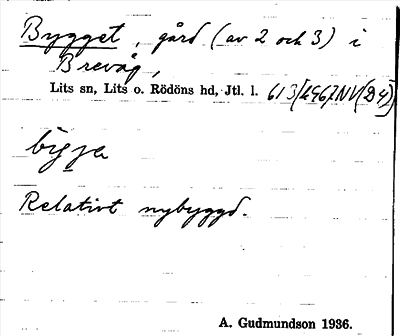 Bygget, gård (av 2 och 3) i
Brevåg,
Lits sn, Lits o. Rödöns hd, Jtl. l. 613
Relativt nybyggd.
A. Gudmundson 1936.